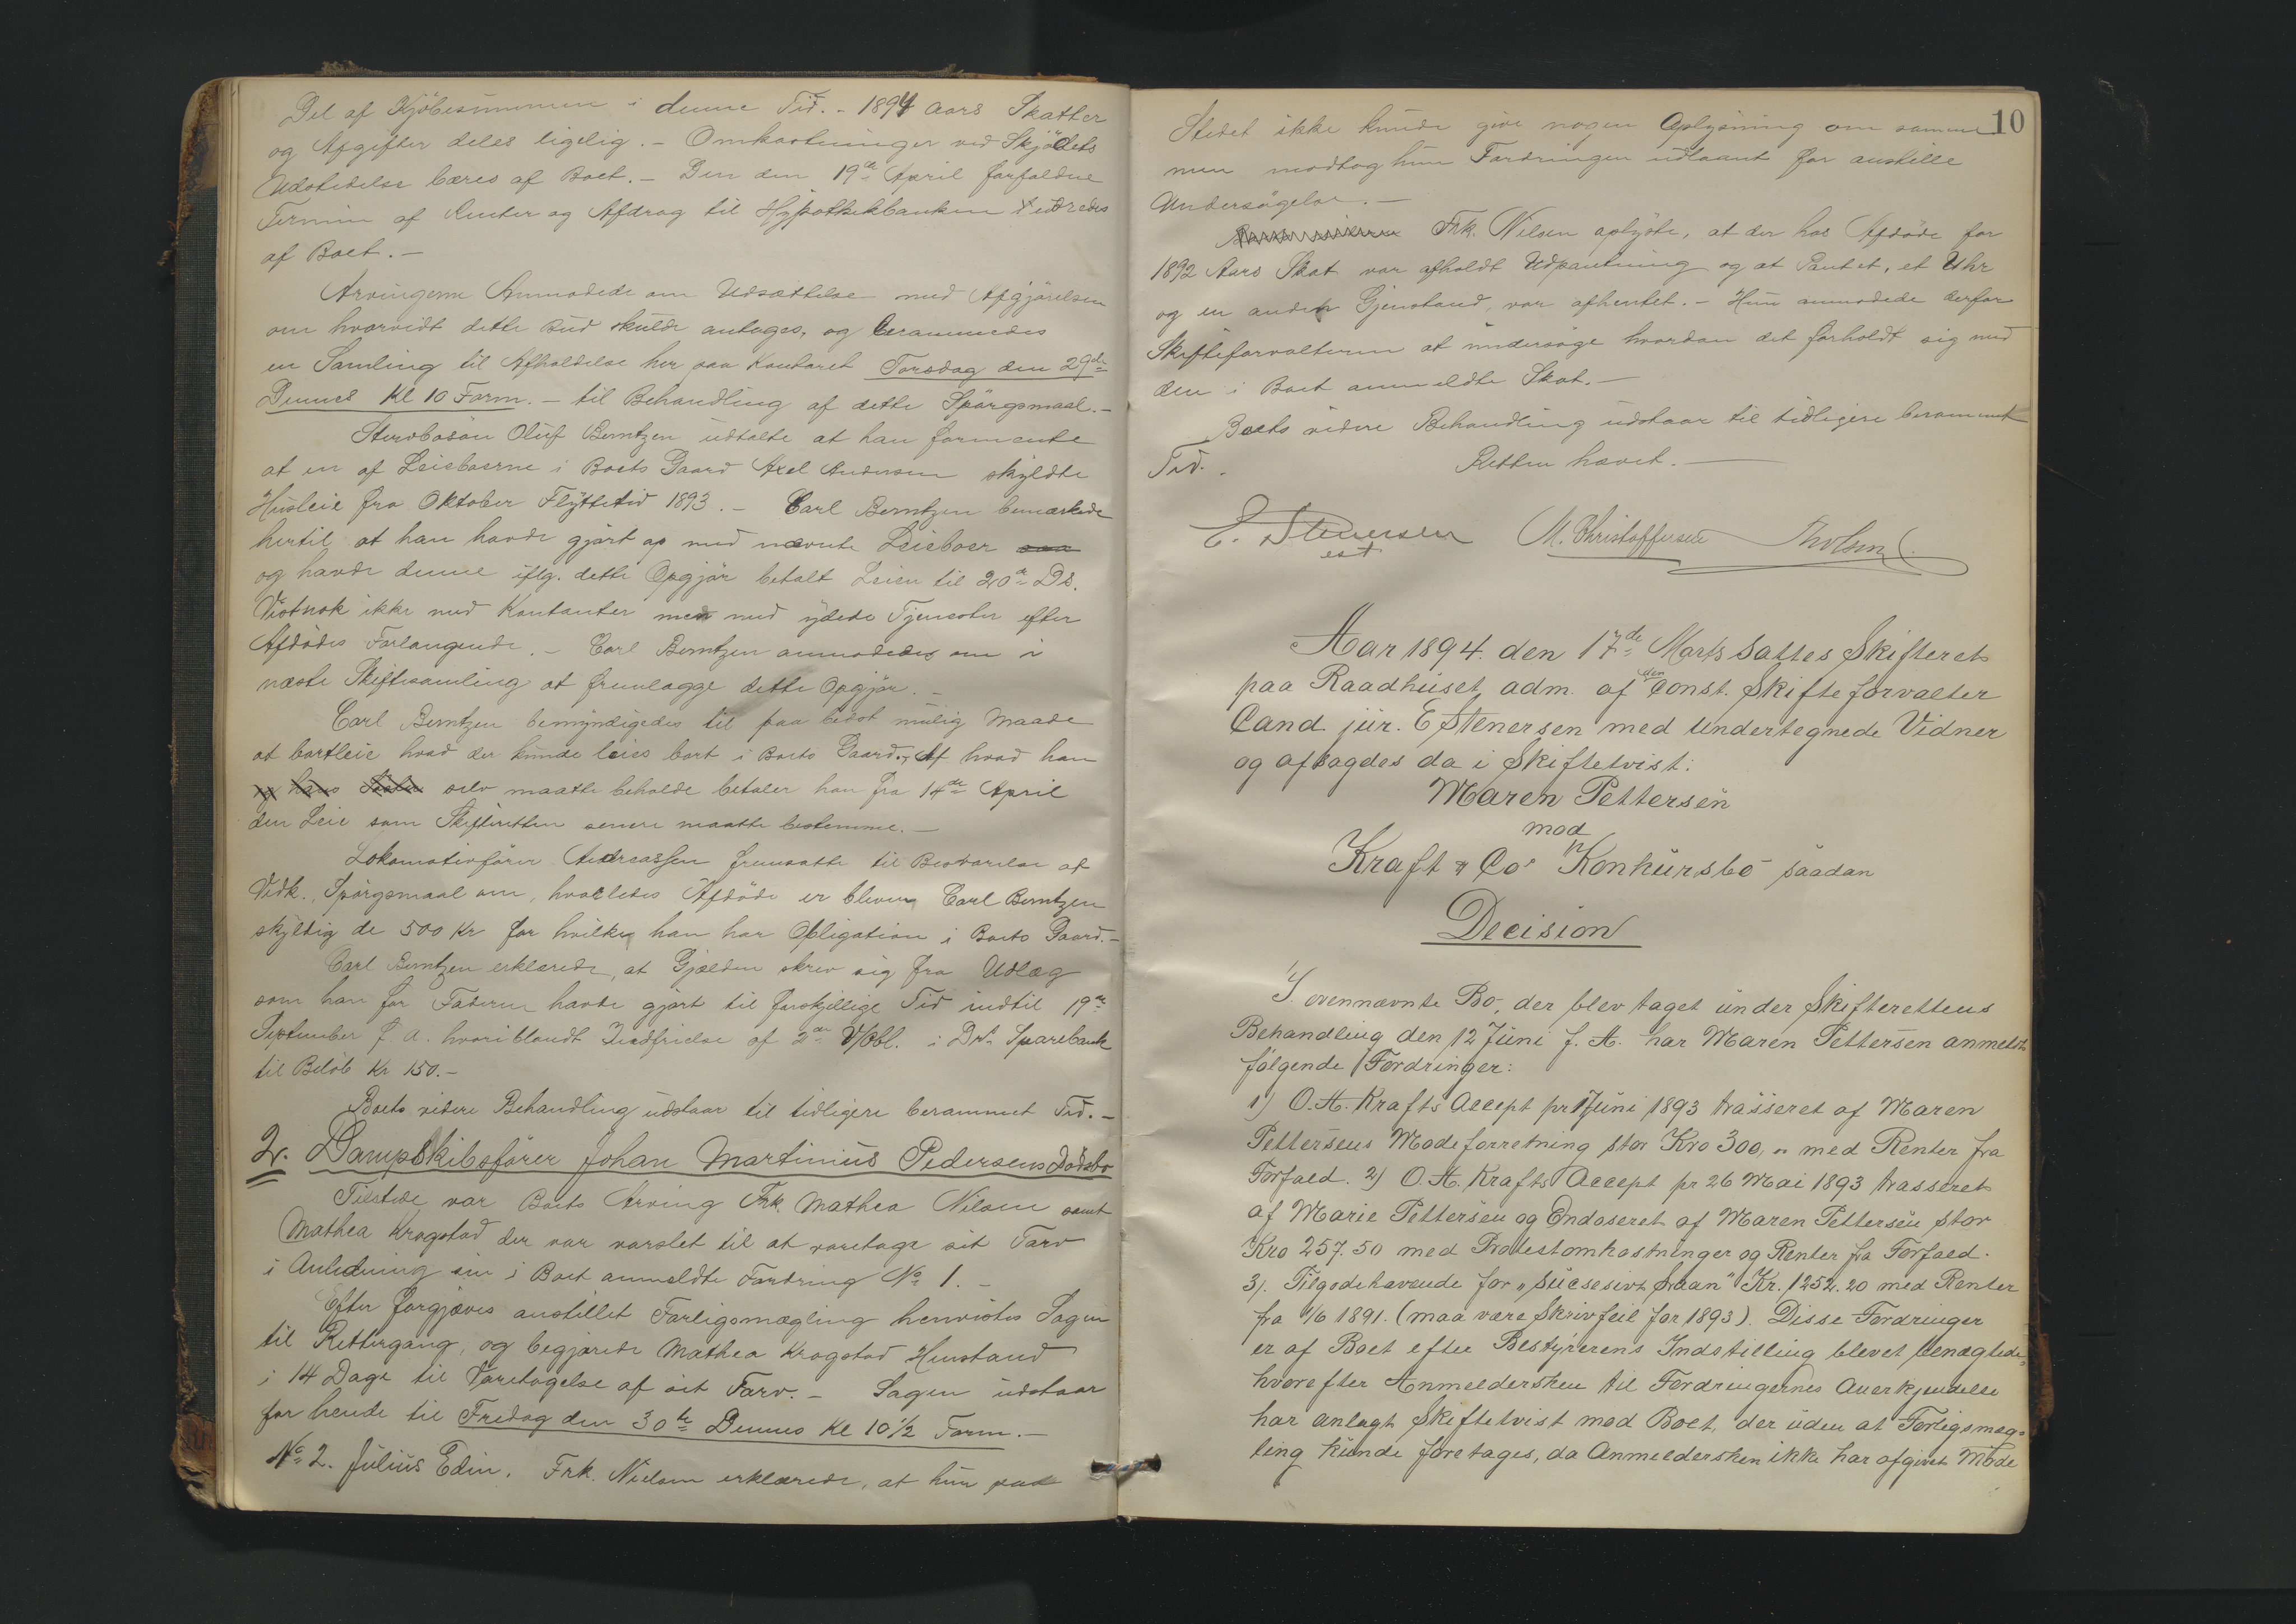 Del af Kjöbesummen i denne Tid. - 1894 Aars Skatter
og Afgifter deles ligelig. - Omkostninger ved Skjödets
Udstedelse bæres af Boet. - Den den 19de April forfaldne
Termin af Renter og Afdrag til Hypothekbanken udredes
af Boet. -
Arvingerne Anmodede om Udsættelse med Afgjörelsen
om hvorvidt dette Bud skulde antages, og berammedes
en Samling til Afholdelse her paa Kontoret Torsdag den 29de
Dennes Kl 10 Form. - til Behandling af dette Spörgsmaal. -
Stervbosön Oluf Berntzen udtalte at han formente
at en af Leieboerne i Boets Gaard Axel Andersen skyldte
Husleie fra Oktober Flyttetid 1893. - Carl Berntzen bemærkede
hertil at han havde gjort op med nævnte Leieboer
og havde denne iflg. dette Opgjör betalt Leien til 20de Ds.
Vistnok ikke med Kontanter men med ydede Tjenester efter
Afdödes Forlangende. - Carl Berntzen anmodedes om i
næste Skiftesamling at fremlægge dette Opgjör. -
Carl Berntzen bemyndigedes til paa bedst mulig Maade
at bortleie hvad der kunde leies bort i Boets Gaard. Af hvad han
selv maatte beholde betaler han fra 14de April
den Leie som Skifteretten senere maatte bestemme. -
Lokomotivförer Andreassen fremsatte til Besvarelse af
Vedk. Spörgsmaal om, hvorledes Afdöde er bleven Carl Berntzen
skyldig de 500 Kr for hvilke han har Obligation i Boets Gaard. -
Carl Berntzen erklærede, at Gjælden skrev sig fra Udlæg
som han for Faderen havde gjort til forskjellige Tid indtil 19de
September f. A. hvoriblandt Indfrielse af 2den V/Obl. i Drs Sparebank
til Belöb Kr 150. -
Boets videre Behandling udstaar til tidligere berammet Tid. -
2. Dampskibsförer Johan Martinius Pedersens Dödsbo
Tilstede var Boets Arving Frk. Mathea Nilsen samt
Mathea Krogstad der var varslet til at varetage sit Tarv
i Anledning sin i Boet anmeldte Fordring No 1. -
Efter forgjæves anstillet Forligsmægling henvistes Sagen
til Rettergang, og begjærede Mathea Krogstad Henstand
i 14 Dage til Varetagelse af sit Tarv. - Sagen udstaar
for hende til Fredag den 30te Dennes Kl 10 1/2 Form. -
No 2. Julius Edin. Frk. Nielsen erklærede, at hun paa
10
Stedet ikke kunde give nogen Oplysning om samme
men modtog hun Fordringen udlaant for anstille
Undersögelser. -
Frk. Nilsen oplyste, at der hos Afdöde for
1892 Aars Skat var afholdt Udpantning og at Pantet, et Uhr
og en anden Gjenstand, var afhentet. - Hun anmodede derfor
Skifteforvalteren at undersöge hvordan det forholdt sig med
den i Boet anmeldte Skat. -
Boets videre Behandling udstaar til tidligere berammet
Tid. Retten hævet. -
E. Stenersen M. Christoffersen
cst
Aar 1894. den 17de Marts sattes Skifteret
paa Raadhuset, adm. af den Const. Skifteforvalter
Cand. jur. E Stenersen med undertegnede Vidner
og afsagdes da i Skiftetvist:
Maren Pettersen
mod
Kraft & Cos Konkursbo saadan
Decision
I ovennævnte Bo, der blev taget under Skifterettens
Behandling den 12 Juni f. A. har Maren Pettersen anmeldt
fölgende Fordringer:
1) O. A. Krafts Accept pr 1 Juni 1893 trasseret af Maren
Pettersens Modeforretning stor Kro 300, " med Renter fra
Forfald. 2) O. A. Krafts Accept pr 26 Mai 1893 trasseret
af Marie Pettersen og Endoseret af Maren Pettersen stor
Kro 257.50 med Protestomkostninger og Renter fra Forfald.
3). Tilgodehavende for "sucsesivt Laan" Kr. 1252.20 med Renter
fra 1/6 1891. (maa være Skrivfeil for 1893). Disse Fordringer
er af Boet efter Bestyrerens Indstilling blevet benægtede,
hvorefter Anmeldersken til Fordringernes Anerkjendelse
har anlagt Skiftetvist mod Boet, der uden at Forligsmæg-
ling kunde foretages, da Anmeldersken ikke har afgivet Möde